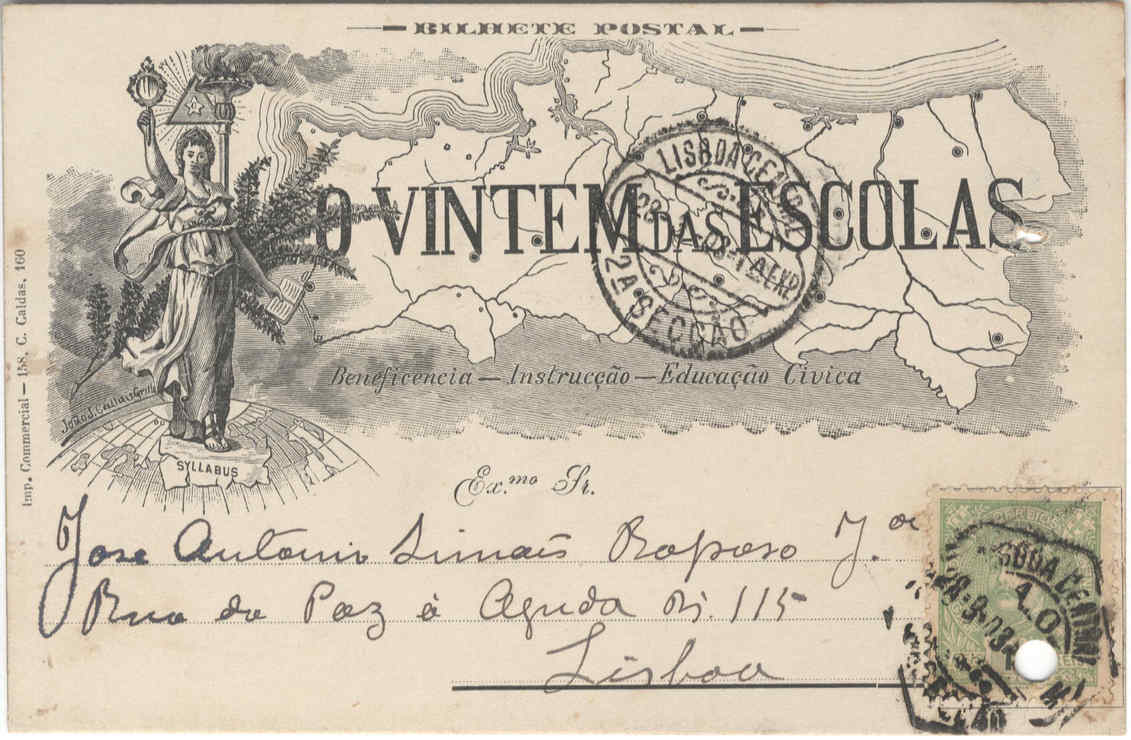 BILHETE POSTAL
O VINTEM DAS ESCOLAS
LISBOA CENTRAL
2A SECÇÃO
Beneficencia — Instrucção — Educação Civica
Imp. Commercial — 158, C. Caldas, 160
SYLLABUS
Ex.mo Sr.
Jose Antonio Simões Raposo J.or
Rua da Paz á Ajuda Nº. 115
Lisboa
CORREIOS